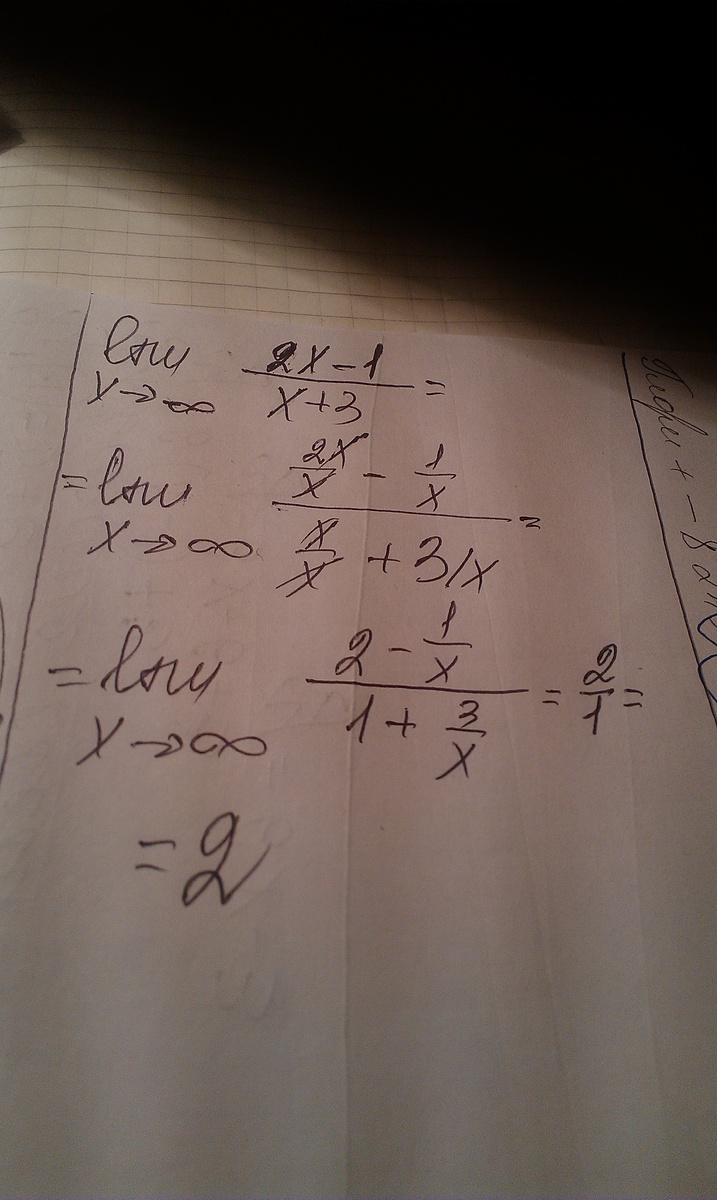 lim 2x-1
x→∞ x+3 =
= lim 2x/x - 1/x
x→∞ x/x + 3/x =
= lim 2 - 1/x
x→∞ 1 + 3/x = 2/1 =
= 2